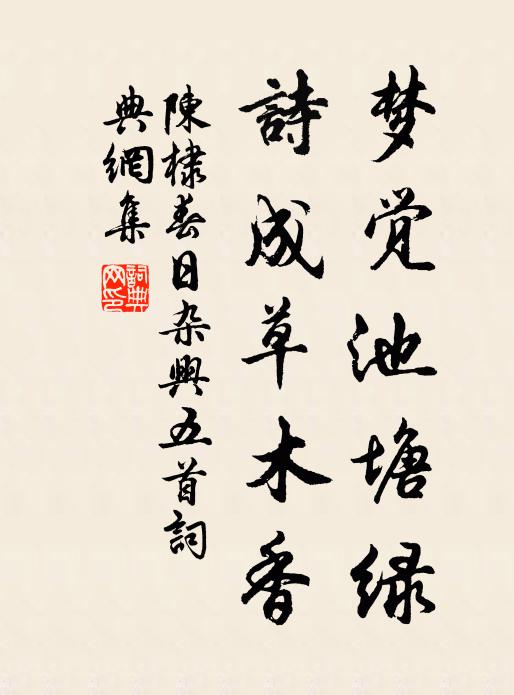 梦觉池塘绿
詩成草木香
陳棣春日杂興五首詞
典網集
詞典网印